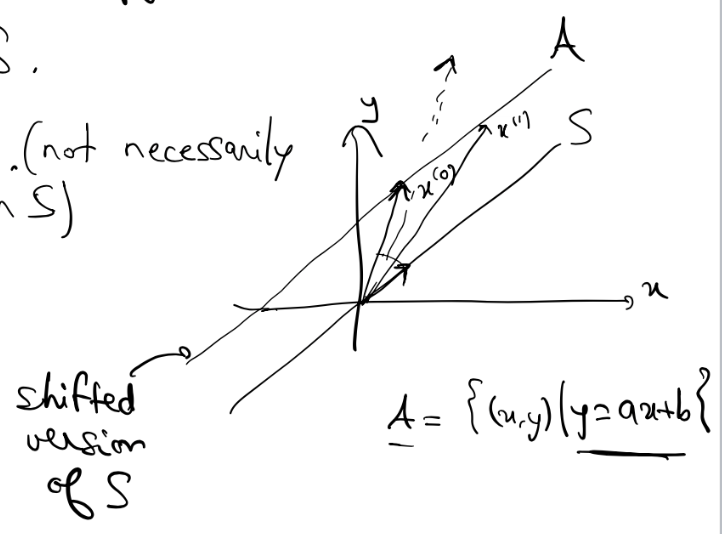 S.
.(not necessarily
S)
A
y
x⁽¹⁾
S
x⁽⁰⁾
x
shifted
version
of S
A = {(x,y)|y=ax+b}